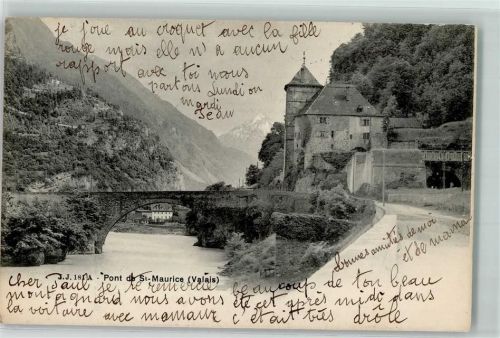 je joue au croquet avec la fille
rouge mais elle n'a aucun
rapport avec toi nous
partons Lundi ou
mardi
Jean
J.J. 1811 - Pont de St-Maurice (Valais)
bonnes amitiés de moi
et de mama
cher Paul je te remercie beaucoup de ton beau
mont quand nous avons été cet après midi dans
la voiture avec maman c'était très drôle